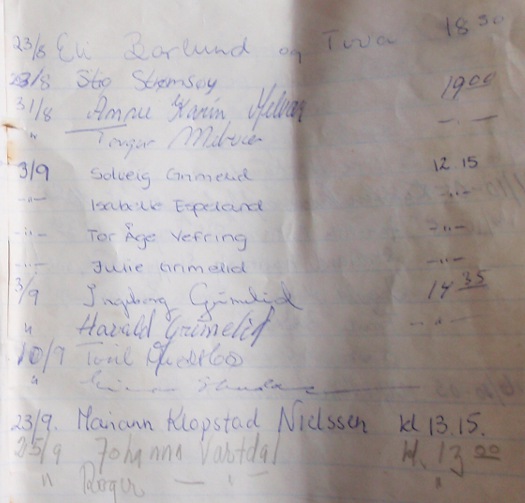 23/8 Eli Barlund og Tuva 18 30
23/8 Stig Strømsøy
31/8 Anne Karin 19 00
" Torgar -"-
3/9 Solveig Grimelid 12 15
-"- Isabelle Espeland -"-
-"- Tor Åge Vefring -"-
-"- Julie Grimelid -"-
3/9 Ingeborg Grimelid 14 35
" Harald Grimelid -"-
10/9 Toril
"
23/9. Mariann Klopstad Nielssen kl 13.15.
25/9 Johanna Vartdal kl. 13 00
" Roger — " — "